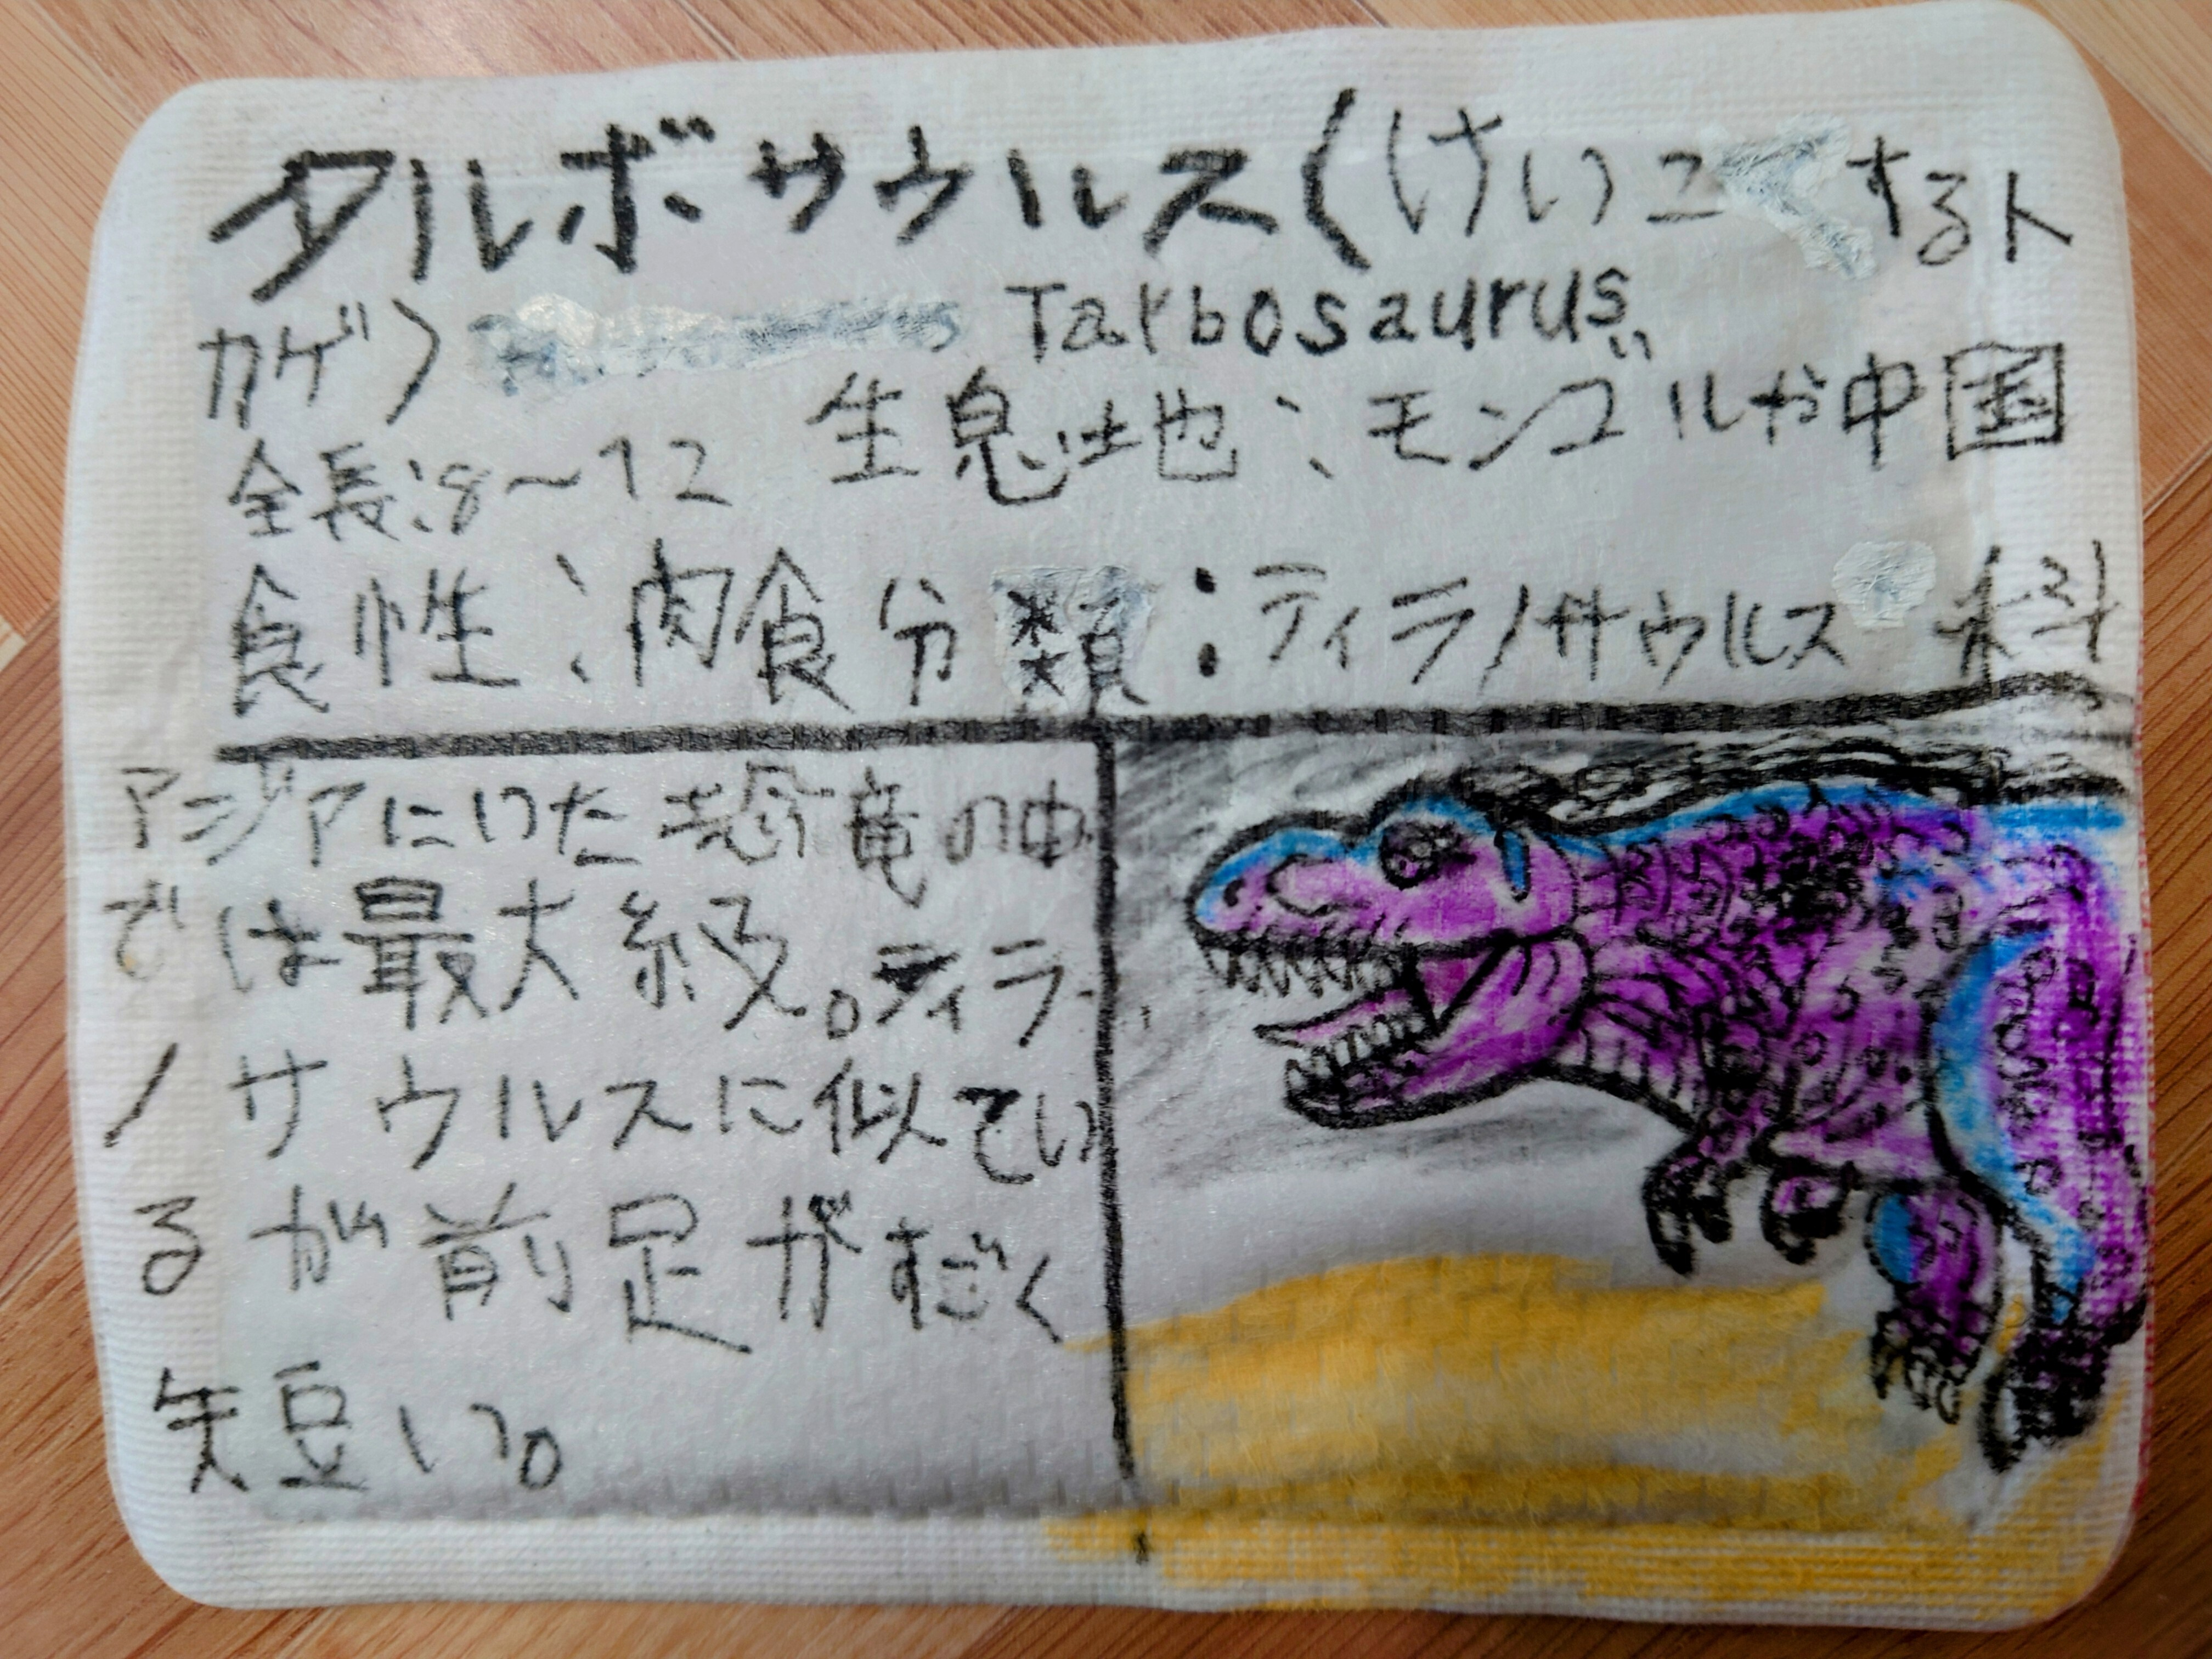 タルボサウルス(けいコくするト
カゲ) Tarbosaurus
全長:8～12 生息地:モンゴルや中国
食性:肉食 分類:ティラノサウルス科
アジアにいた恐竜の中
では最大級。ティラ
ノサウルスに似てい
るが前足がすごく
短い。